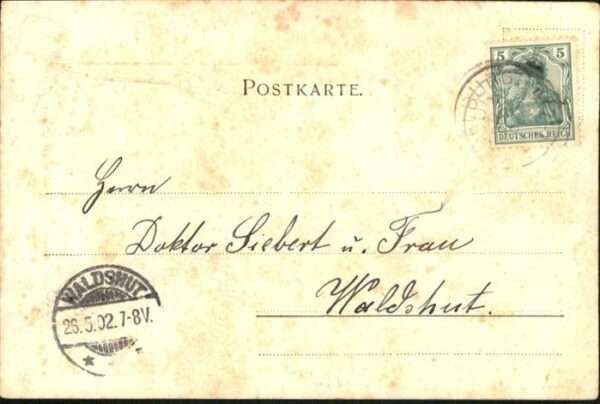 POSTKARTE.
5 5
DEUTSCHES REICH
Herrn
Doktor Siebert u. Frau
Waldshut.
WALDSHUT
26.5.02.7-8V.